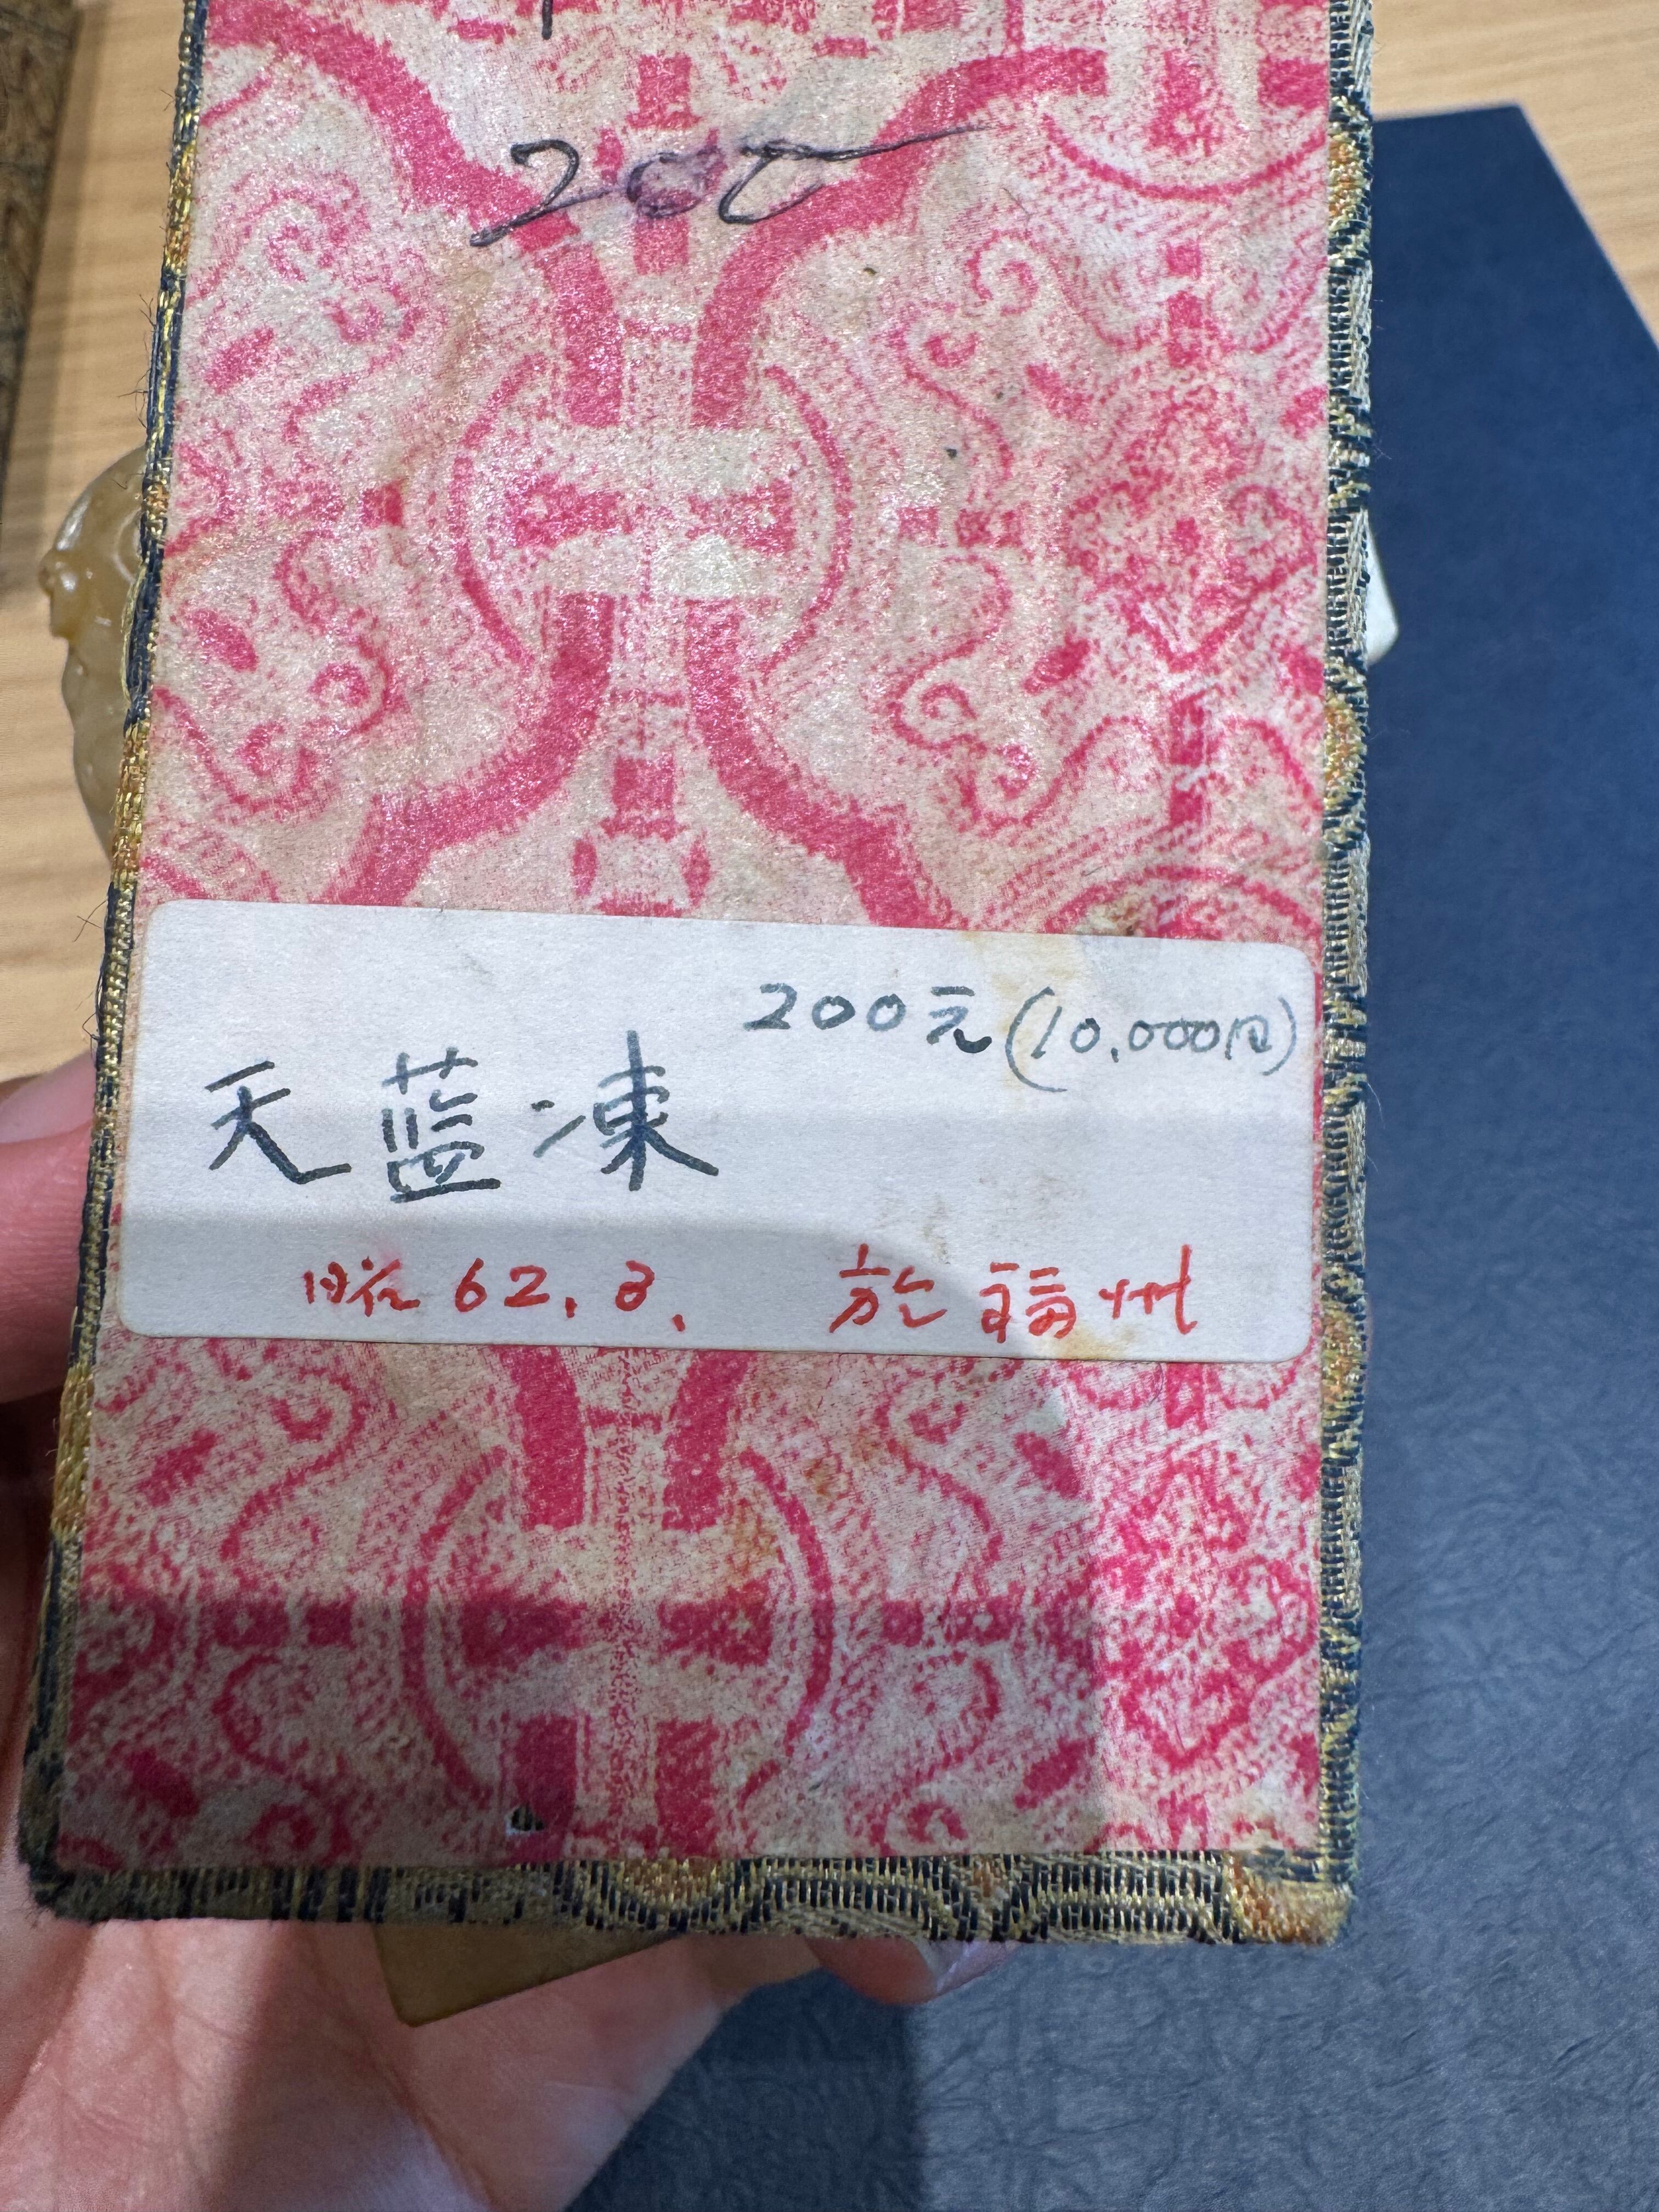 200
200元(10,000円)
天藍凍
昭和62.8. 於福州